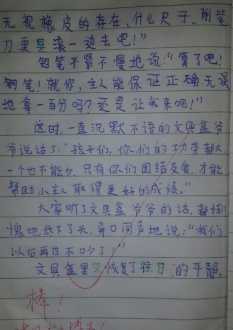 无视橡皮的存在,什么尺子、削笔
刀更是滚一边去吧!"
钢笔不紧不慢地说:"算了吧!
钢笔!就你,主人能保证正确无误
地拿一百分吗?还是让我来吧!"
这时,一直沉默不语的文具盒爷
爷说话了:"孩子们,你们的功劳都大
一个也不能少,只有你们团结友爱,才能
帮助小主人取得更好的成绩。"
大家听了文具盒爷爷的话,都惭
愧地低下了头,异口同声地说:"我们
以后再也不吵了!"
文具盒里又恢复了往日的平静。
棒!